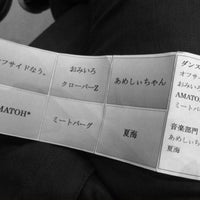 フサイドなう。
おみいろ
クローバーZ
あめしぃちゃん
MATOH*
ミートバーグ
夏海
ダンス
オフサイ
おみいろ
AMATO
ミートバ
音楽部門
あめしぃ
夏海